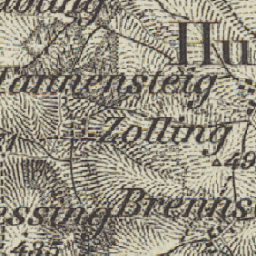 Hu
Tannensteig
Zolling
49
essing
Brenns
435